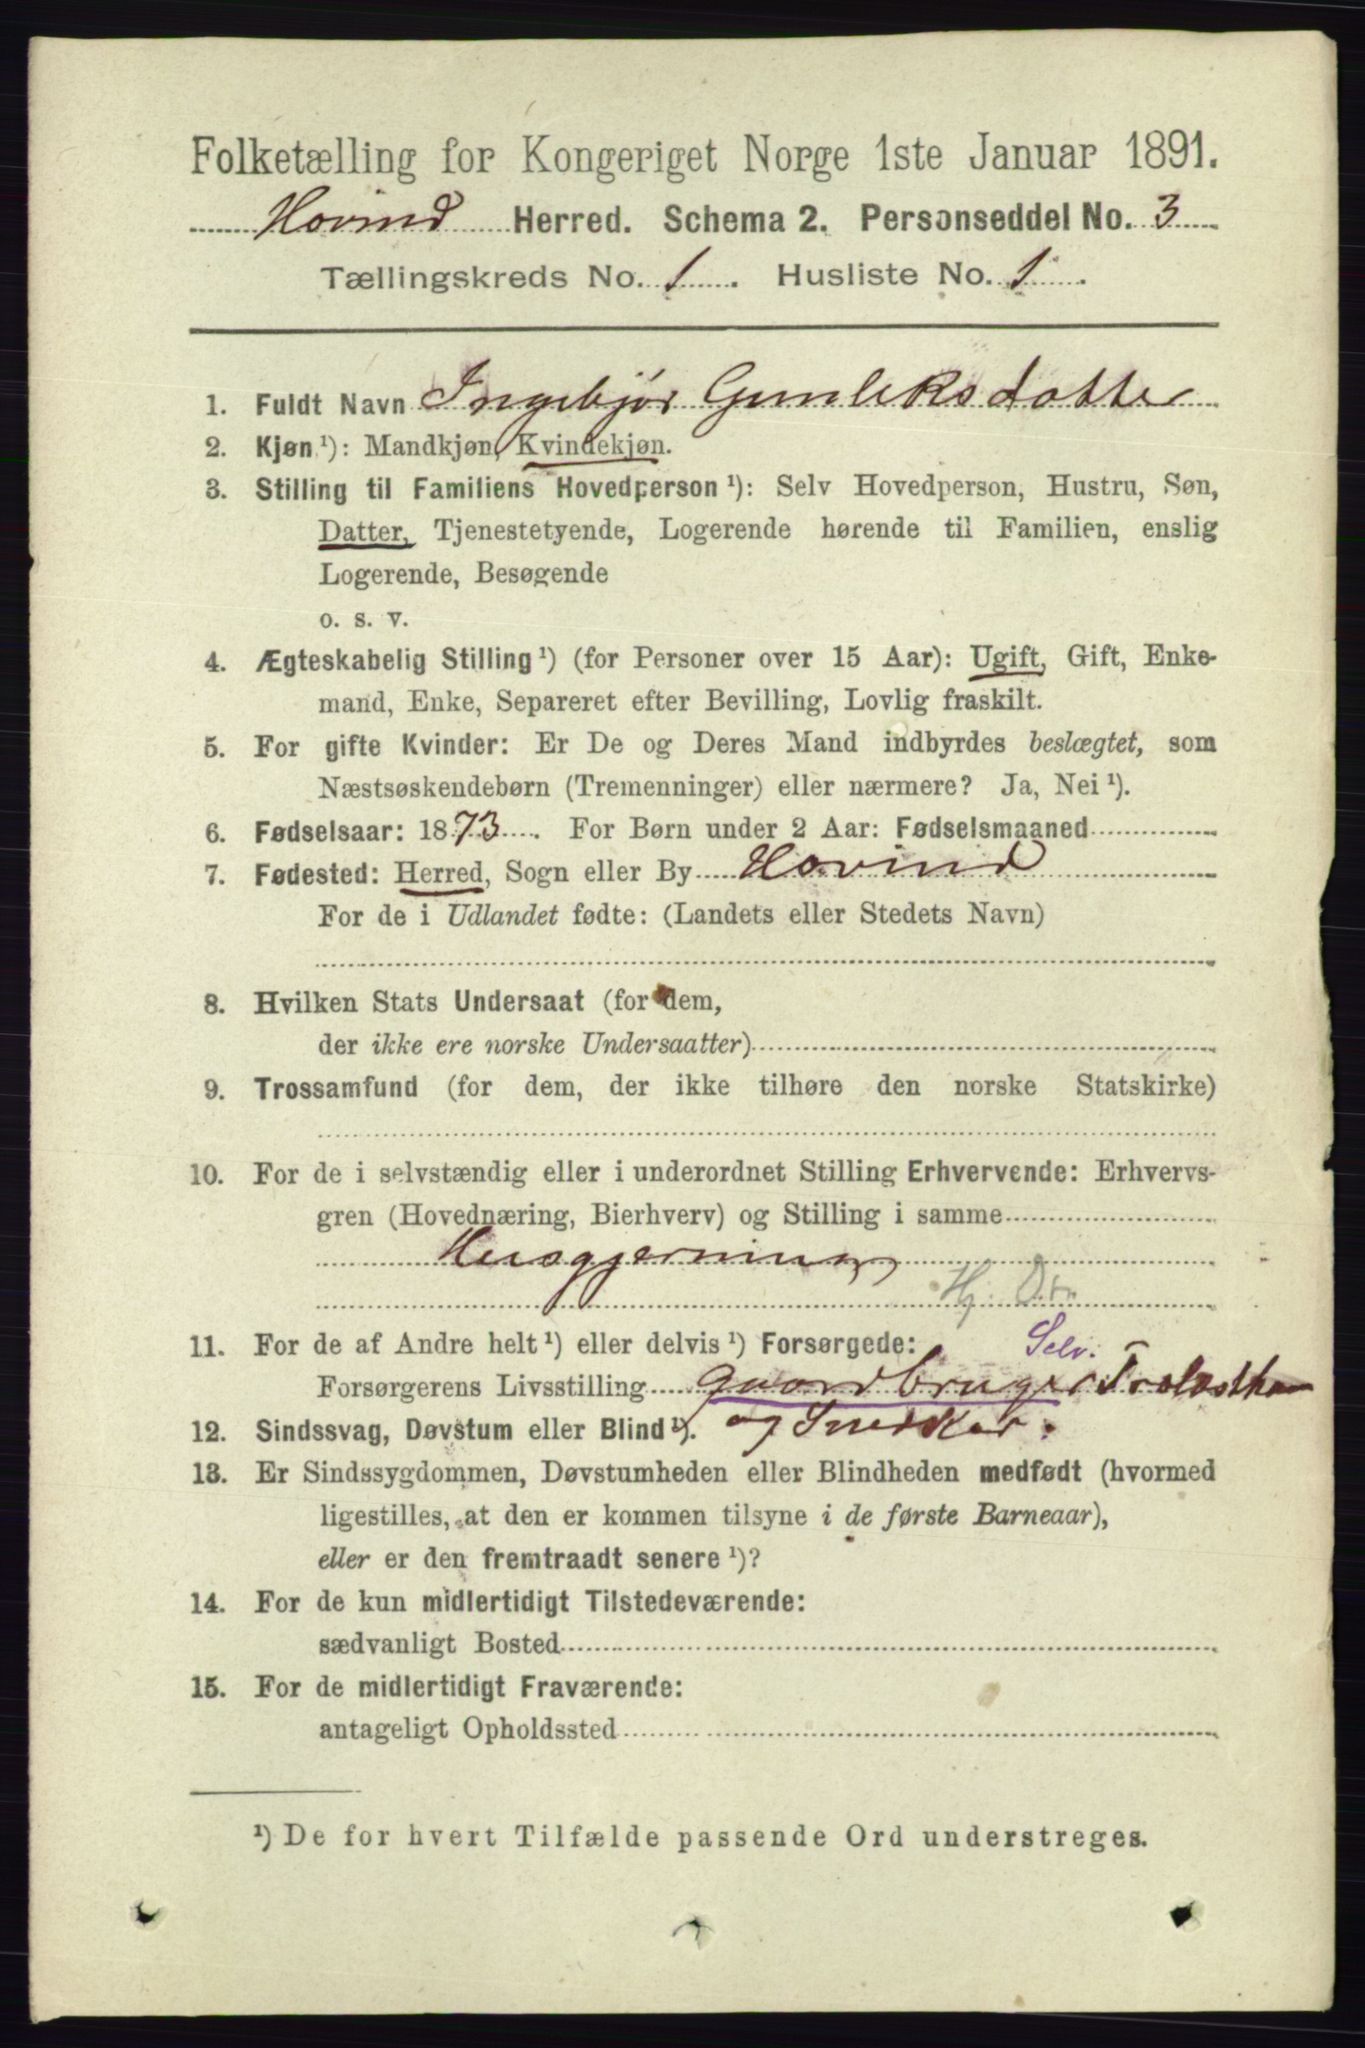 Folketælling for Kongeriget Norge 1ste Januar 1891.
Hovind Herred. Schema 2. Personseddel No. 3
Tællingskreds No. 1. Husliste No. 1.
1. Fuldt Navn Ingebjør Gunleksdatter
2. Kjøn ¹): Mandkjøn, Kvindekjøn.
3. Stilling til Familiens Hovedperson ¹): Selv Hovedperson, Hustru, Søn,
Datter, Tjenestetyende, Logerende hørende til Familien, enslig
Logerende, Besøgende
o. s. v.
4. Ægteskabelig Stilling ¹) (for Personer over 15 Aar): Ugift, Gift, Enke-
mand, Enke, Separeret efter Bevilling, Lovlig fraskilt.
5. For gifte Kvinder: Er De og Deres Mand indbyrdes beslægtet, som
Næstsøskendebørn (Tremenninger) eller nærmere? Ja, Nei ¹).
6. Fødselsaar: 1873. For Børn under 2 Aar: Fødselsmaaned
7. Fødested: Herred, Sogn eller By Hovind
For de i Udlandet fødte: (Landets eller Stedets Navn)
8. Hvilken Stats Undersaat (for dem,
der ikke ere norske Undersaatter)
9. Trossamfund (for dem, der ikke tilhøre den norske Statskirke)
10. For de i selvstændig eller i underordnet Stilling Erhvervende: Erhvervs-
gren (Hovednæring, Bierhverv) og Stilling i samme
Husgjerning
Hj. Dtr.
11. For de af Andre helt ¹) eller delvis ¹) Forsørgede: Selv.
Forsørgerens Livsstilling Gaardbruger
12. Sindssvag, Døvstum eller Blind ¹). og Snedker.
13. Er Sindssygdommen, Døvstumheden eller Blindheden medfødt (hvormed
ligestilles, at den er kommen tilsyne i de første Barneaar),
eller er den fremtraadt senere ¹)?
14. For de kun midlertidigt Tilstedeværende:
sædvanligt Bosted
15. For de midlertidigt Fraværende:
antageligt Opholdssted
¹) De for hvert Tilfælde passende Ord understreges.